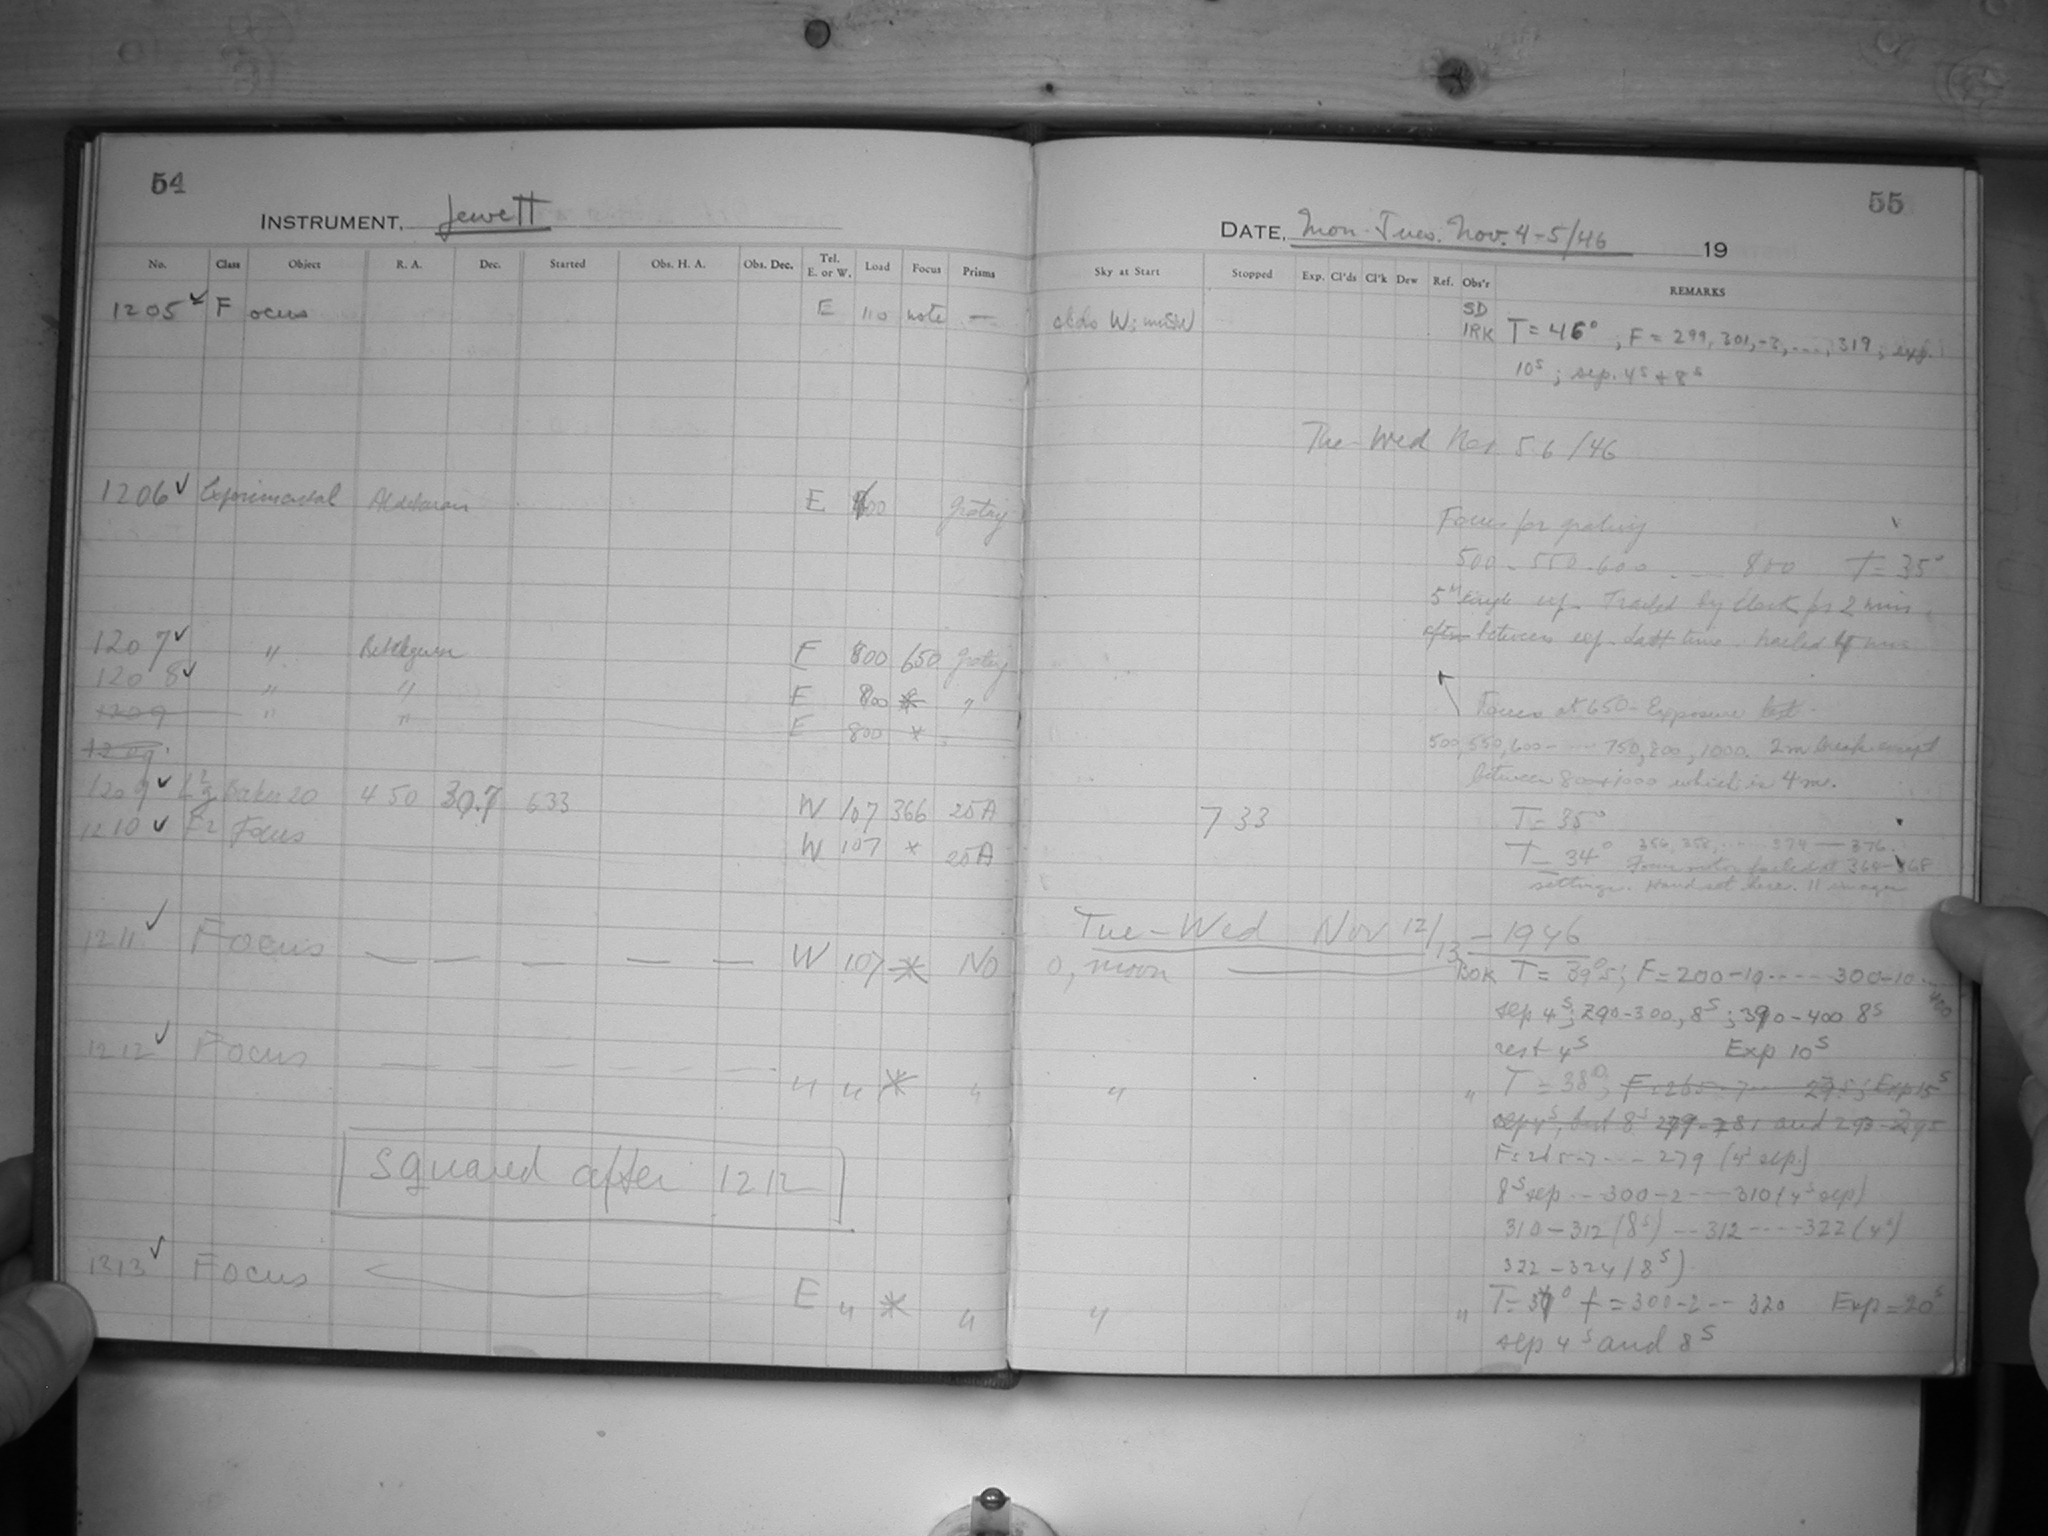 54
INSTRUMENT, Jewett
No. Class Object R. A. Dec. Started Obs. H. A. Obs. Dec. Tel. E. or W. Load Focus Prisms
1205 ✓ F ocus E 110 note —
1206 ✓ Experimental Aldebaran E 800 grating
1207 ✓ " Betelgeuse E 800 650 grating
1208 ✓ " " E 800 * "
1209 " " E 800 *
1209
1209 ✓ Baker 20 4 50 30.7 6 33 W 107 366 25A
1210 ✓ Focus W 107 * 25A
1211 ✓ Focus — — — — — W 107 * NO
1212 ✓ Focus — — — — — " " * "
Squared after 1212
1213 ✓ Focus E " * "
55
DATE, Mon-Tues. Nov. 4-5/46 19
Sky at Start Stopped Exp. Cl'ds Cl'k Dew Ref. Obs'r REMARKS
SD
clds W; SW IRK T = 46° ; F = 299, 301, -3, ...., 319; exp.
10s ; sep. 4s + 8s
Tue-Wed Nov 5 6 /46
Focus for grating
500 - 550 - 600 .... 800 T = 35°
5m exp. Trailed by clock for 2 mins.
between exp. Last time trailed 4 min
Focus at 650 - Exposure test.
500, 550, 600 - ... 750, 800, 1000. 2m break except
between 800+1000 which is 4m.
7 33 T = 35°
T = 34° 356, 358, .... 374 — 376.
Focus motor failed at 364-368
settings. Hand set here. 11 images
Tue-Wed Nov 12/13 - 1946
0, moon BOK T = 39°5; F = 200-10 ---- 300-10 ... 400
sep 4s; 290-300, 8s; 390-400 8s
rest 4s Exp 10s
" " T = 38°; F = 265-7 ... 295; Exp 15s
sep 4s, but 8s 279-281 and 293-295
F = 265-7 ... 279 (4s sep)
8s sep -- 300-2 --- 310 (4s sep)
310-312 (8s) -- 312 ---- 322 (4s)
322-324 (8s)
" " T = 37° f = 300-2 -- 320 Exp = 20s
sep 4s and 8s